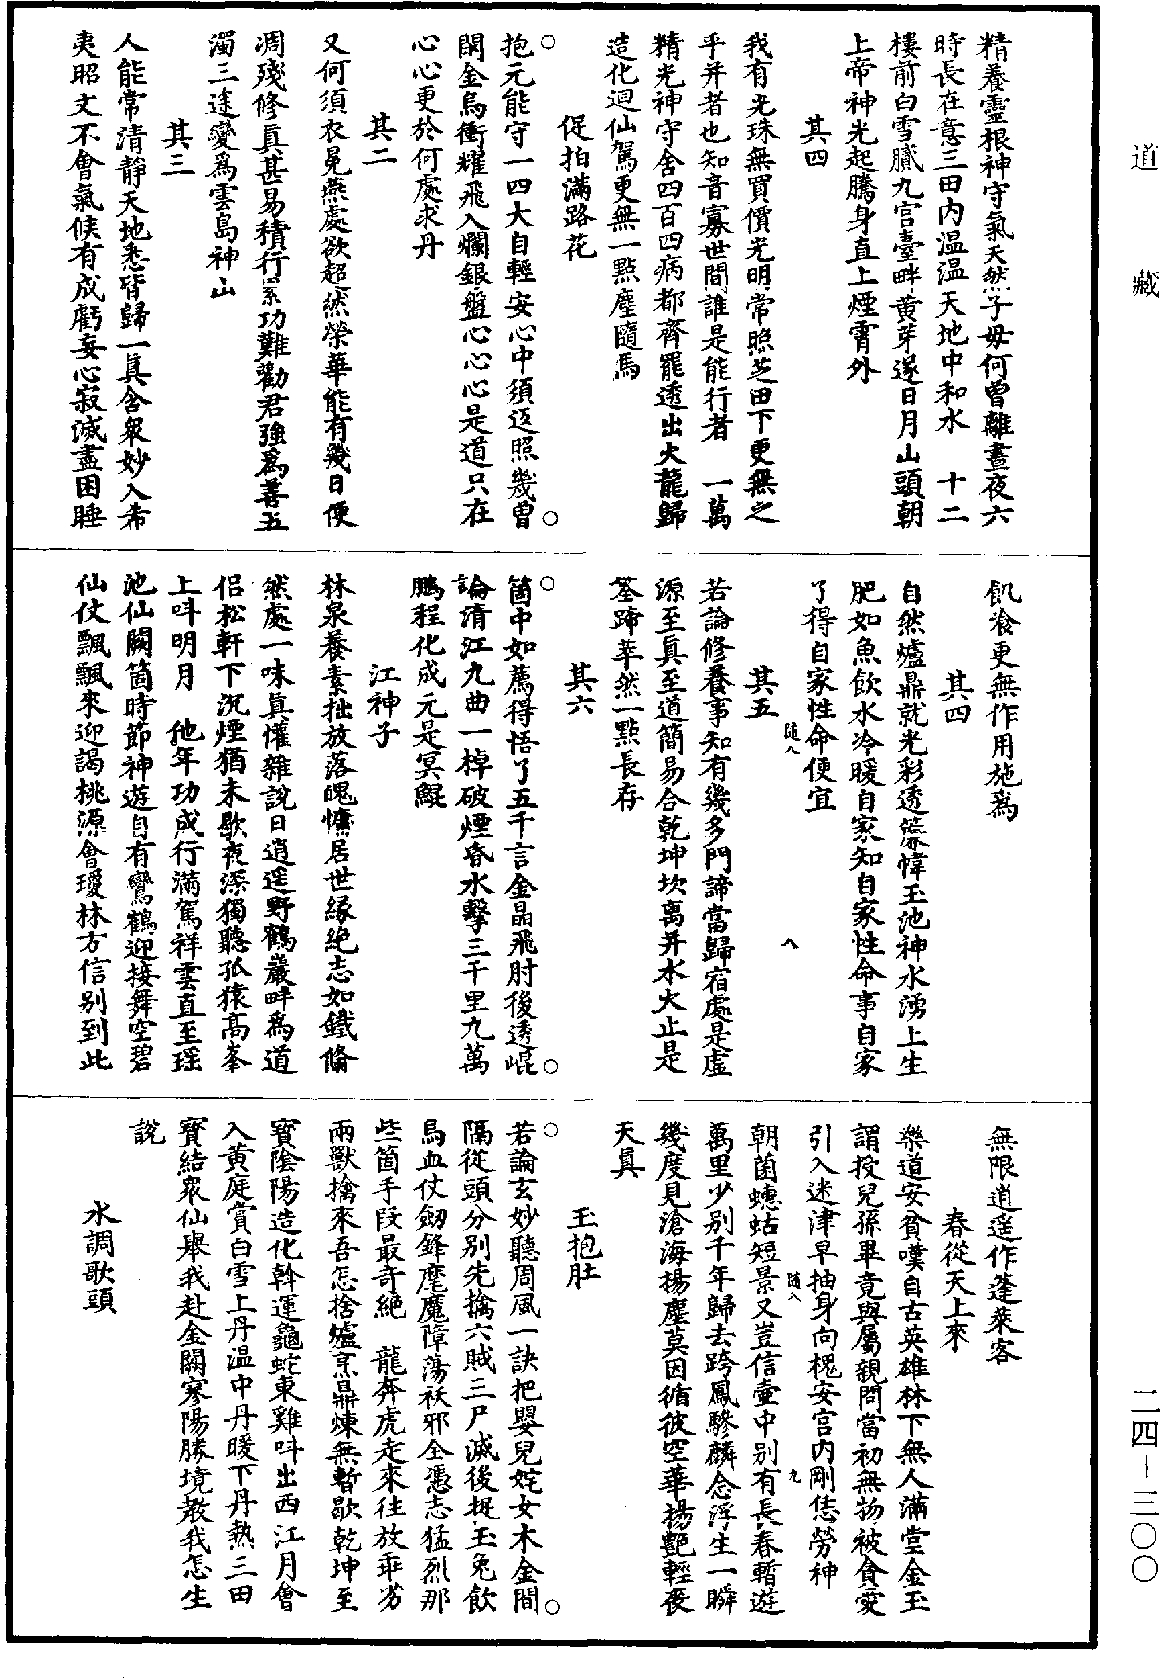 道藏
精養靈根神守氣天然子母何曾離晝夜六
時長在意三田内温温天地中和水　十二
樓前白雪膩九宮臺畔黄芽遂日月山頭朝
上帝神光起騰身直上煙霄外
其四
我有光珠無買價光明常照芝田下更無之
乎并者也知音寡世間誰是能行者　一萬
精光神守舍四百四病都齊罷透出火龍歸
造化迴仙駕更無一點塵隨馬
促拍滿路花
○抱元能守一四大自輕安心中須返照幾曾○
閑金烏衝耀飛入爛銀盤心心心是道只在
心心更於何處求丹
其二
又何須衣冕燕處欲超然榮華能有幾日便
凋殘修真甚易積行累功難勸君強爲善五
濁三途變爲雲島神山
其三
人能常清靜天地悉皆歸一真含衆妙入希
夷昭文不會氣候有成虧妄心寂滅盡困睡
飢飡更無作用施爲
其四
自然爐鼎就光彩透簾幃玉池神水湧上生
肥如魚飲水冷暖自家知自家性命事自家
了得自家性命便宜
隨八
八
其五
若論修養事知有幾多門諦當歸宿處是虛
源至真至道簡易合乾坤坎离并水火止是
筌蹄莘然一點長存
其六
○箇中如薦得悟了五千言金晶飛肘後透崐○
論清江九曲一棹破煙昏水擊三千里九萬
鵬程化成元是冥鯤
江神子
林泉養素拙放落魄慵居世緣絶志如鐵翛
然處一味真懽雜說日逍遥野鶴巖畔爲道
侣松軒下沉煙猶未歇夜深獨聽孤猿高峯
上呌明月　他年功成行滿駕祥雲直至瑶
池仙闕箇時節神遊自有鸞鶴迎接舞空碧
仙仗飄飄來迎謁桃源會瓊林方信别到此
無限逍遥作蓬萊客
春從天上來
樂道安貧嘆自古英雄林下無人滿堂金玉
謂授兒孫畢竟與屬親問當初無物被貪愛
引入迷津早抽身向槐安宫内剛恁勞神
隨八
九
朝菌蟪蛄短景又豈信壷中别有長春暫遊
萬里少别千年歸去跨鳳驂麟念浮生一瞬
幾度見滄海楊塵莫因循彼空華楊艷輕喪
天真
玉抱肚
○若論玄妙聽周風一訣把嬰兒姹女木金間○
隔從頭分别先擒六賊三尸滅後捉玉兔飲
烏血仗劒鋒麾魔障蕩袄邪全憑志猛烈那
些箇手段最奇絶　龍奔虎走來往放乖劣
兩獸擒來吾怎捨爐烹鼎煉無暫歇乾坤至
寳陰陽造化斡運龜蛇東雞呌出西江月會
入黄庭賞白雪上丹温中丹暖下丹熱三田
寳結衆仙舉我赴金闕寥陽勝境教我怎生
說
水調歌頭
二四—三〇〇